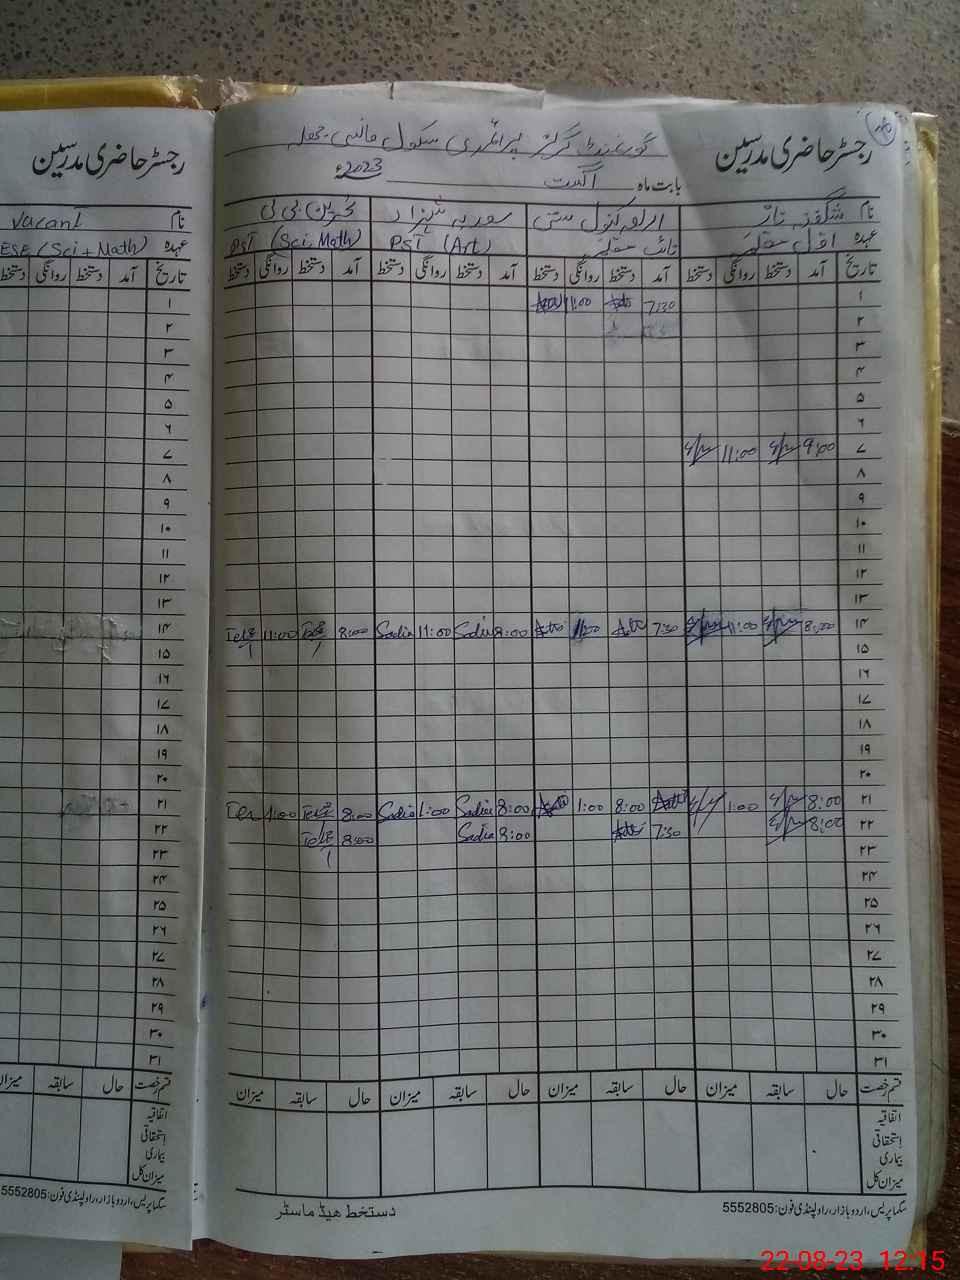 رجسٹر حاضری مدرسین
گورنمنٹ گرلز پرائمری سکول
بابت ماہ اگست 2023ء
نام شگفتہ ناز
عہدہ اول معلمہ
PST (Art)
PST (Sci. Math)
تاریخ آمد دستخط روانگی دستخط آمد دستخط روانگی دستخط آمد دستخط روانگی دستخط آمد دستخط روانگی دستخط
۱ 7:30 11:00
۲
۳
۴
۵
۶
۷ 9:00 11:00
۸
۹
۱۰
۱۱
۱۲
۱۳
۱۴ 8:00 11:00 7:30 11:00 8:00 Sadia 11:00 Sadia 8:00 11:00
۱۵
۱۶
۱۷
۱۸
۱۹
۲۰
۲۱ 8:00 1:00 8:00 1:00 8:00 Sadia 1:00 Sadia 8:00 1:00
۲۲ 8:00 7:30 8:00 Sadia 8:00
۲۳
۲۴
۲۵
۲۶
۲۷
۲۸
۲۹
۳۰
۳۱
قسم رخصت حال سابقہ میزان حال سابقہ میزان حال سابقہ میزان حال سابقہ میزان
اتفاقیہ
استحقاقی
بیماری
میزان کل
سگما پریس، اردو بازار، راولپنڈی فون: 5552805
دستخط ھیڈ ماسٹر
رجسٹر حاضری مدرسین
نام Vacant
عہدہ ESE (Sci + Math)
تاریخ آمد دستخط روانگی دستخط
۱
۲
۳
۴
۵
۶
۷
۸
۹
۱۰
۱۱
۱۲
۱۳
۱۴
۱۵
۱۶
۱۷
۱۸
۱۹
۲۰
۲۱
۲۲
۲۳
۲۴
۲۵
۲۶
۲۷
۲۸
۲۹
۳۰
۳۱
قسم رخصت حال سابقہ میزان
اتفاقیہ
استحقاقی
بیماری
میزان کل
سگما پریس، اردو بازار، راولپنڈی فون: 5552805
22-08-23 12:15